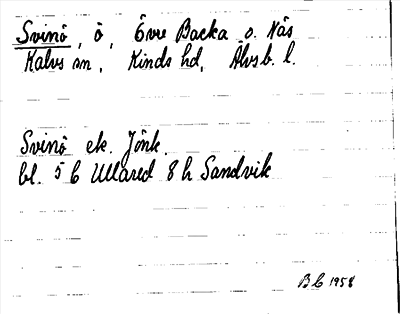 Svinö, ö, Övre Backa o. Näs
Kalvs sn, Kinds hd, Älvsb. l.
Svinö ek. Jönk.
bl. 5 6 Ullared 8 h Sandvik
BL 1958